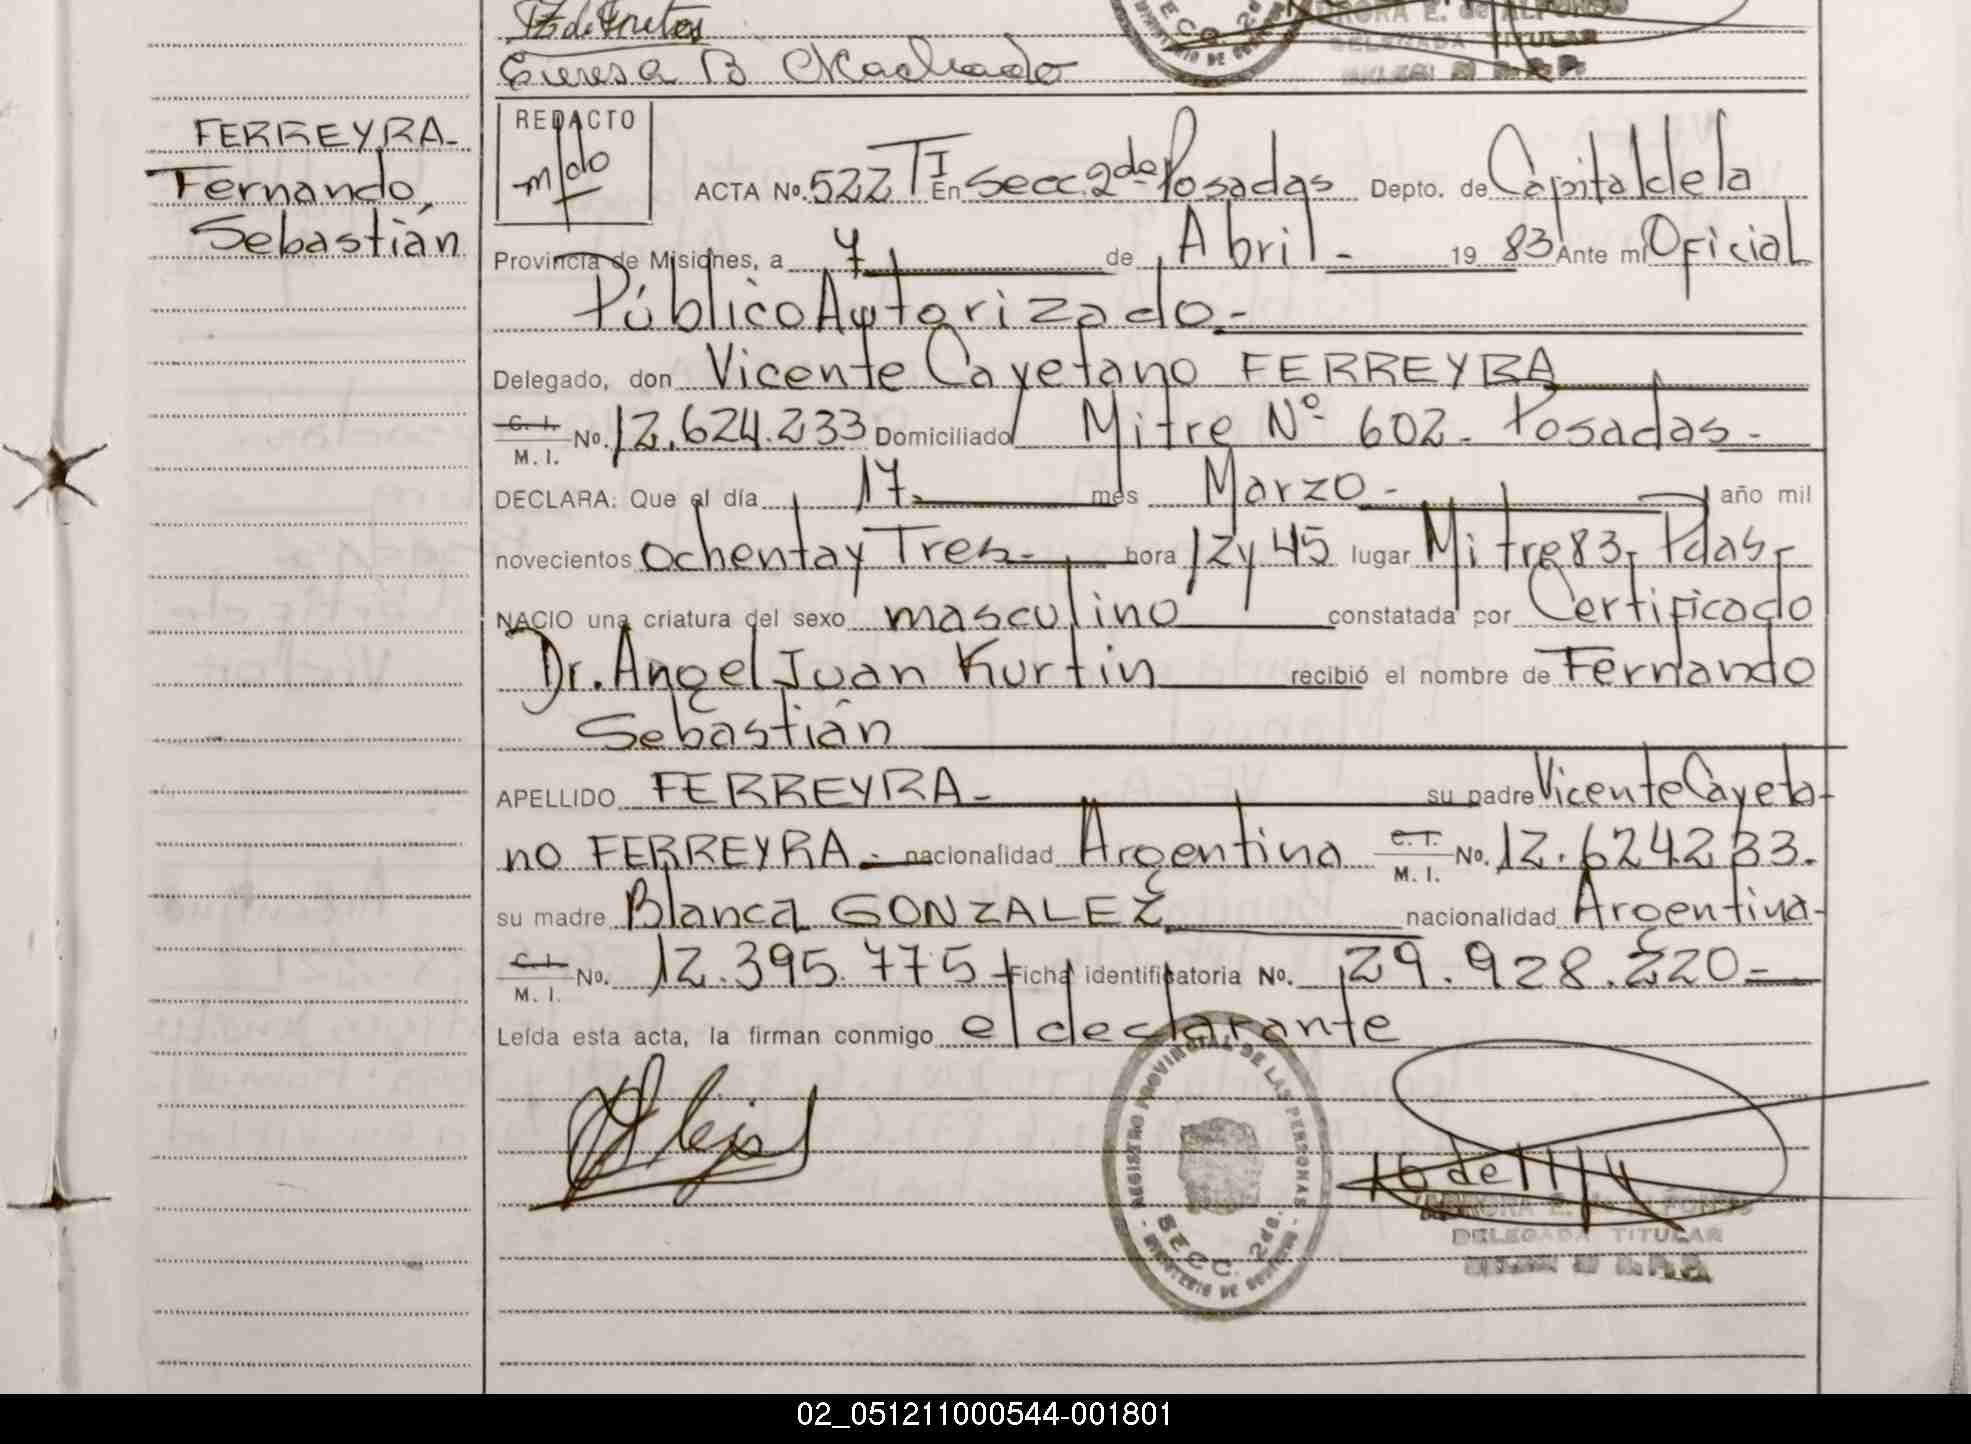 Teresa B Machado
SECC. 2da.
MINISTERIO DE GOBIERNO
AURORA E. de ALFONSO
DELEGADA TITULAR
FERREYRA-
Fernando
Sebastián
REDACTO
ACTA No. 522 TI En Secc. 2da Posadas Depto. de Capital de la
Provincia de Misiones, a 7 de Abril - 19 83 Ante mi Oficial
Público Autorizado.-
Delegado, don Vicente Cayetano FERREYRA
C. I. / M. I. No. 12.624.233 Domiciliado Mitre Nº 602- Posadas-
DECLARA: Que el día 17 mes Marzo- año mil
novecientos ochenta y Tres- hora 12 y 45 lugar Mitre 83- Pdas-
NACIO una criatura del sexo masculino constatada por Certificado
Dr. Angel Juan Kurtin recibió el nombre de Fernando
Sebastián
APELLIDO FERREYRA- su padre Vicente Cayeta-
no FERREYRA.- nacionalidad Argentina C. I. / M. I. No. 12.624233.
su madre Blanca GONZALEZ nacionalidad Argentina-
C. I. / M. I. No. 12.395.775- Ficha identificatoria No. 29.928.220-
Leída esta acta, la firman conmigo el declarante
REGISTRO PROVINCIAL DE LAS PERSONAS
SECC. 2da.
- MINISTERIO DE GOBIERNO -
AURORA E. de ALFONSO
DELEGADA TITULAR
02_051211000544-001801